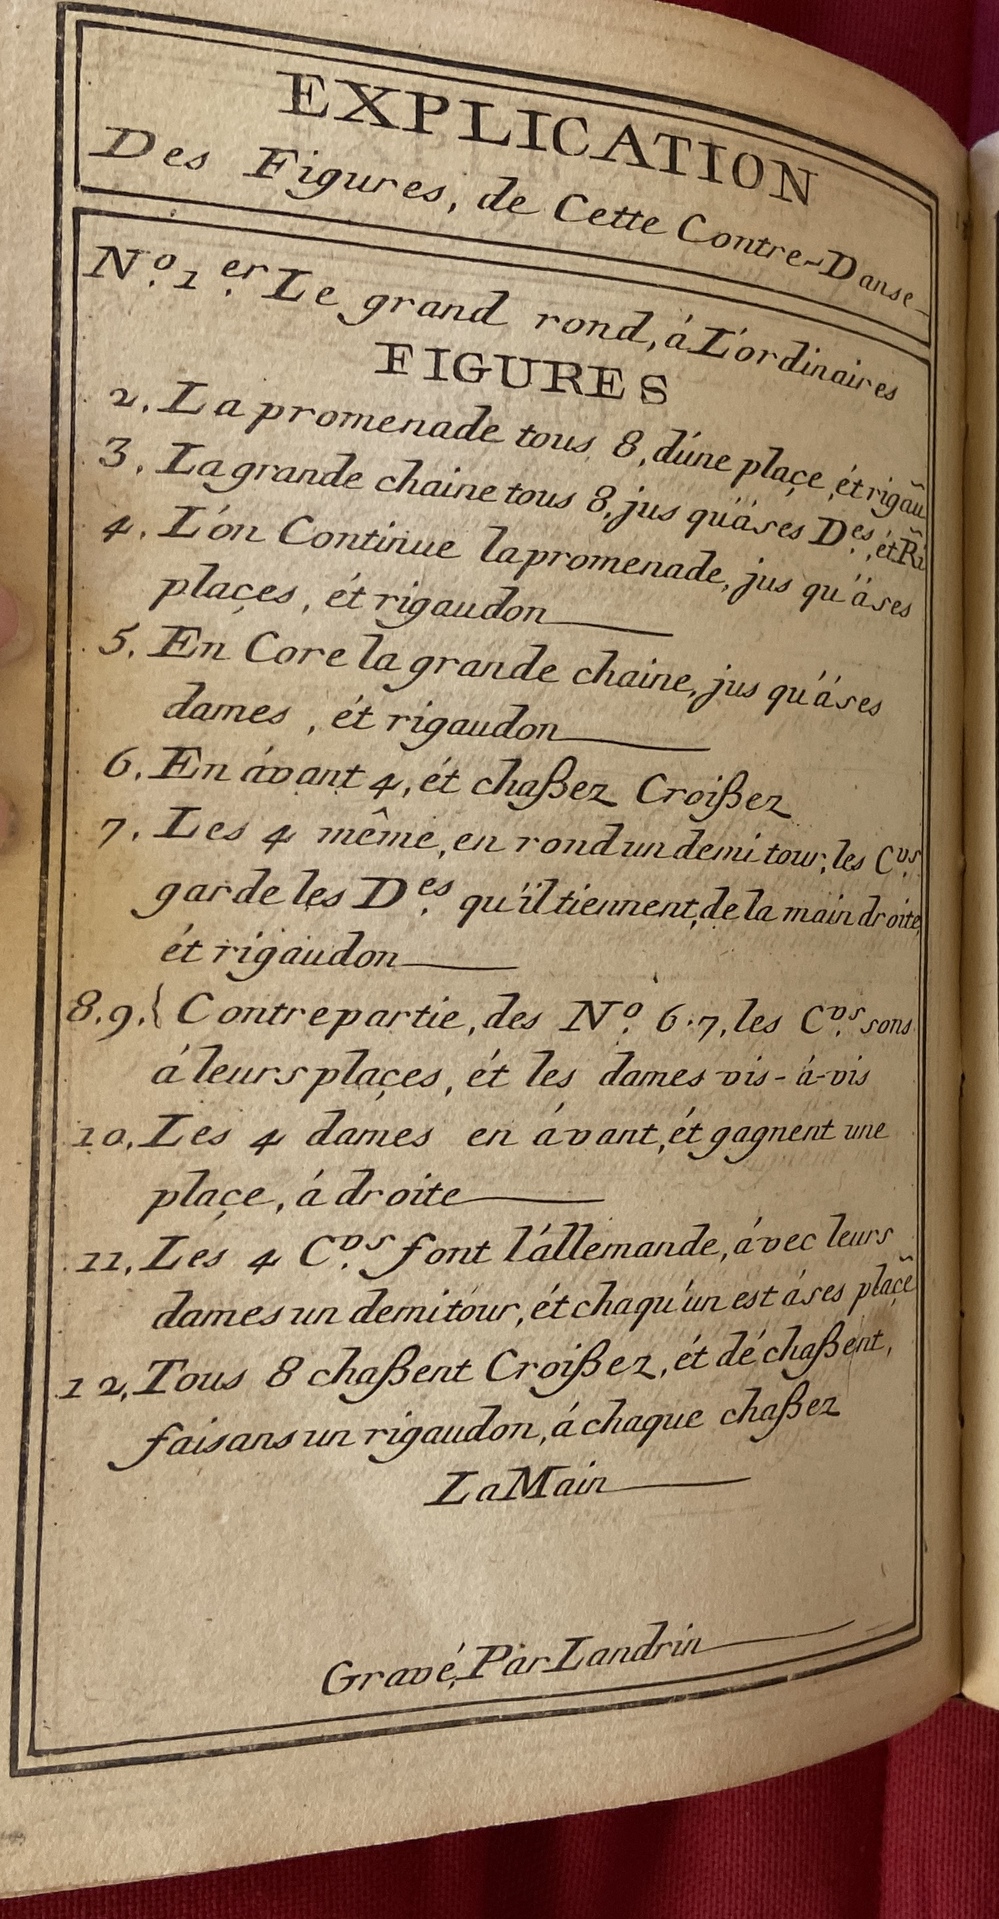 EXPLICATION
Des Figures, de Cette Contre-Danse
N.º 1.er Le grand rond, á L'ordinaires
FIGURES
2. La promenade tous 8, d'úne plaçe, ét rigau͂
3. La grande chaine tous 8, jus qu'á ses D.es, ét R͂i
4. L'on Continue la promenade, jus qu'á ses
plaçes, ét rigaudon
5. En Core la grande chaine, jus qu'á ses
dames, ét rigaudon
6. En ávant 4, ét chaßez Croißez
7. Les 4 même, en rond un demi tour, les C.vrs
garde les D.es qu'il tiennent, de la main droite,
ét rigaudon
8.9.{ Contre partie, des N.º 6.7, les C.vrs sons
á leurs plaçes, ét les dames vis-á-vis
10. Les 4 dames en ávant, ét gagnent une
plaçe, á droite
11. Les 4 C.vrs font l'állemande, ávec leurs
dames un demi tour, ét chaqu'un est á ses plaçẽ
12. Tous 8 chaßent Croißez, ét dé chaßent,
faisans un rigaudon, á chaque chaßez
La Main
Gravé, Par Landrin